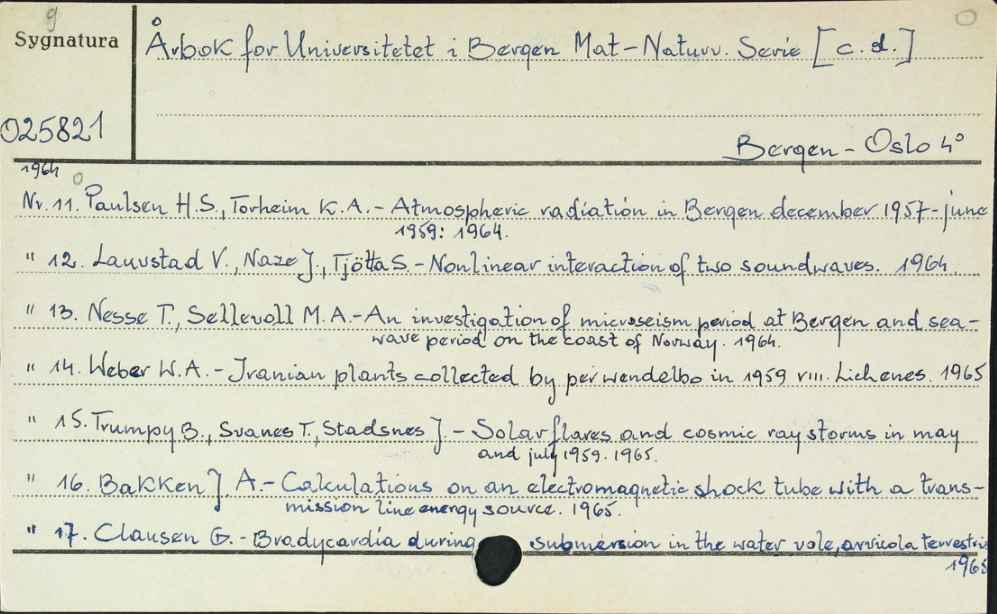 g
Sygnatura
Årbok for Universitetet i Bergen Mat-Naturv. Serie [c.d.]
025821
Bergen - Oslo 4°
1964
Nr. 11. Paulsen H.S., Torheim K.A. - Atmospheric radiation in Bergen december 1957-june
1959: 1964.
" 12. Lauvstad V., Naze J., Tjötta S. - Nonlinear interaction of two soundwaves. 1964.
" 13. Nesse T., Sellevoll M.A. - An investigation of microseism period at Bergen and sea-
wave period on the coast of Norway. 1964.
" 14. Weber W.A. - Iranian plants collected by per wendelbo in 1959 VIII. Lichenes. 1965
" 15. Trumpy B., Svanes T., Stadsnes J. - Solar flares and cosmic ray storms in may
and july 1959. 1965.
" 16. Bakken J. A. - Calculations on an electromagnetic shock tube with a trans-
mission line energy source. 1965.
" 17. Clausen G. - Bradycardia during submersion in the water vole, arvicola terrestris